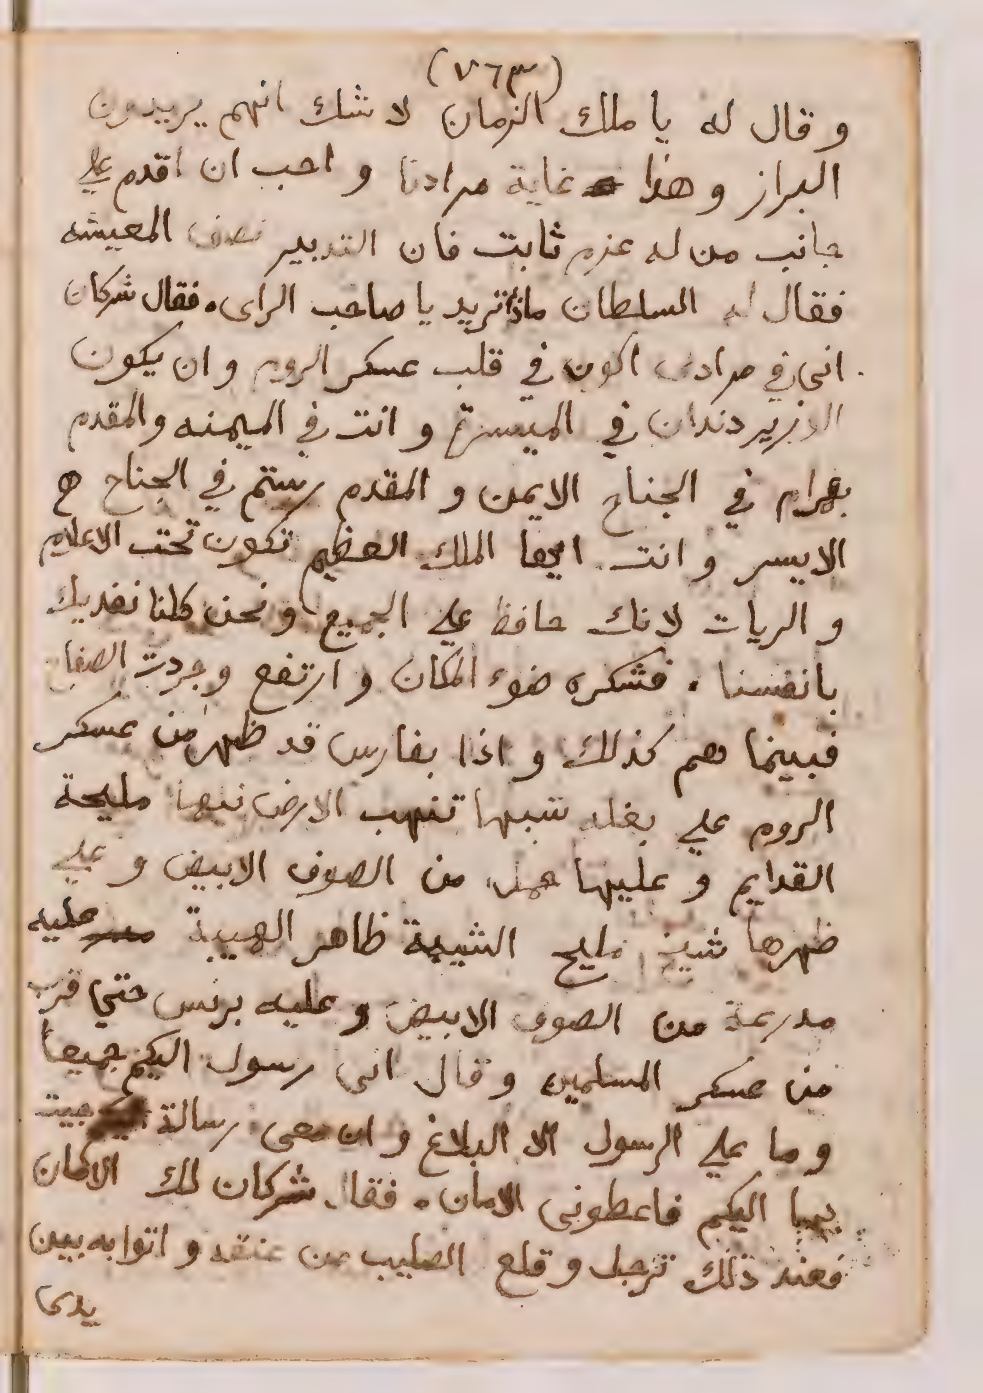 (٧٦٣)
و قال له يا ملك الزمان لا شك انهم يريدون
البراز و هذا غاية مرادنا و احب ان اقدم علي
جانب من له عزم ثابت فان التدبير نصف المعيشه
فقال له السلطان ماذا تريد يا صاحب الراى. فقال شركان
انى في مرادى اكون في قلب عسكر الروم و ان يكون
الوزير دندان في الميسرة و انت في الميمنه والمقدم
بهرام في الجناح الايمن و المقدم رستم في الجناح
الايسر و انت ايها الملك العظيم تكون تحت الاعلام
و الريات لانك حافظ علي الجميع و نحن كلنا نفديك
بانفسنا. فشكره ضوء المكان و ارتفع وجردت الصفاح
فبينما هم كذلك و اذا بفارس قد ظهر من عسكر
الروم علي بغله تنهب الارض نهبا مليحة
القدايم و عليها من الصوف الابيض و علي
ظهرها شيخ مليح الشيبة ظاهر الهيبة عليه
مدرعة من الصوف الابيض و عليه برنس حتي قرب
من عسكر المسلمين و قال انى رسول اليكم جميعا
و ما علي الرسول الا البلاغ و ان معى رسالة جيت
بها اليكم فاعطونى الامان. فقال شركان لك الامان
فعند ذلك ترجل و قلع الصليب من عنقه و اتوا به بين
يدى